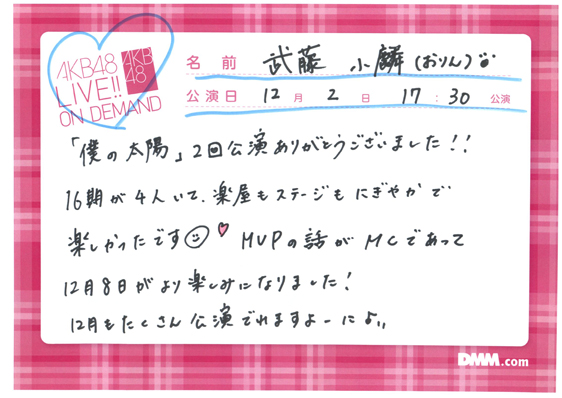 AKB48
LIVE!!
ON DEMAND
AKB
48
名前 武藤 小麟(おりん)
公演日 12月2日 17:30公演
「僕の太陽」2回公演ありがとうございました!!
16期が4人いて、楽屋もステージもにぎやかで
楽しかったです MVPの話がMCであって
12月8日がより楽しみになりました!
12月もたくさん公演でれますよーによ,,
DMM.com